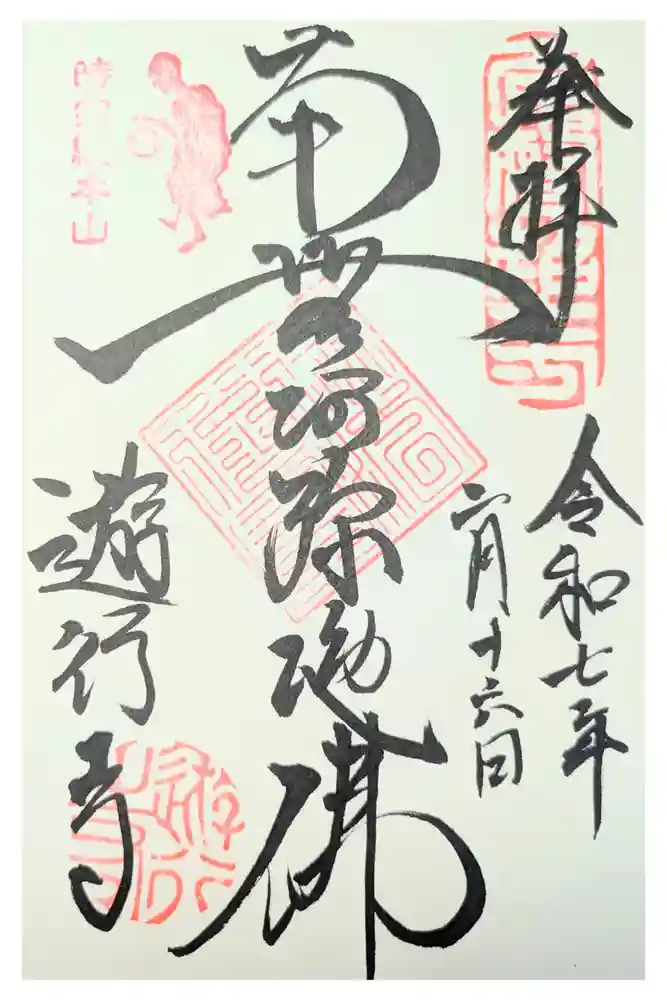 奉拝
令和七年
六月十六日
南無阿弥陀佛
時宗総本山
遊行寺